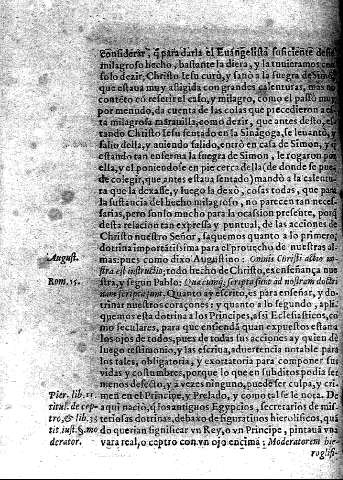 considerar, q̃ para darla el Euangelista suficiente deste
milagroso hecho, bastante la diera, y la tuuieramos con
solo dezir, Christo Iesu curò, y sanò a la suegra de Simõ,
que estaua muy afligida con grandes calenturas, mas no
contẽto cõ referir el caso, y milagro, como el passò muy
por menudo, da cuenta de las cosas que precedieron a es
ta milagrosa marauilla, como dezir, que antes desto, es
tando Christo Iesu sentado en la Sinagoga, se leuantò, y
saliò della, y auiendo salido, entrò en casa de Simon, y q̃
estando tan enferma la suegra de Simon, le rogaron por
ella, y el poniendose en pie cerca della (de donde se pue
de colegir, que antes estaua sentado) mandò a la calentu
ra que la dexasse, y luego la dexò, cosas todas, que para
la sustancia del hecho milagroso, no parecen tan neces-
sarias, pero son lo mucho para la ocasion presente, porq̃
desta relacion tan expressa y puntual, de las acciones de
Christo nuestro Señor, saquemos quanto a lo primero,
dotrina importãtissima para el prouecho de nuestras al-
August. mas: pues como dixo Augustino: Omnis Christi actio no-
stra est instructio; todo hecho de Christo, es enseñança nue
Rom. 15. stra, y segun Pablo: Quæcunq; scripta sunt ad nostram doctri
nam scripta sunt. Quanto ay escrito, es para enseñar, y do-
trinar nuestros coraçones; y quanto a lo segundo, apli-
quemos esta dotrina a los Principes, assi Eclesiasticos, co
mo seculares, para que entiendã quan expuestos estan a
los ojos de todos, pues de todas sus acciones ay quien de
luego testimonio, y las escriua, aduertencia notable para
los tales, obligatoria, y exortatoria para componer sus
vidas y costumbres, porque lo que en subditos podia ser
menos defecto, y a vezes ninguno, puede ser culpa, y cri
Pier. lib. 11. men en el Principe, y Prelado, y como tal se le nota. De
titul. de cep- aqui naciò, q̃ los antiguos Egypcios, secretarios de mis-
tro, & lib. 33 teriosas dotrinas, debaxo de figuras hieroglificos, quã
tit. iust. §. mo do querian significar vn Rey, o vn Principe, pintauã vna
derator. vara real, o ceptro con vn ojo encima; Moderatorem hie-
roglifi-